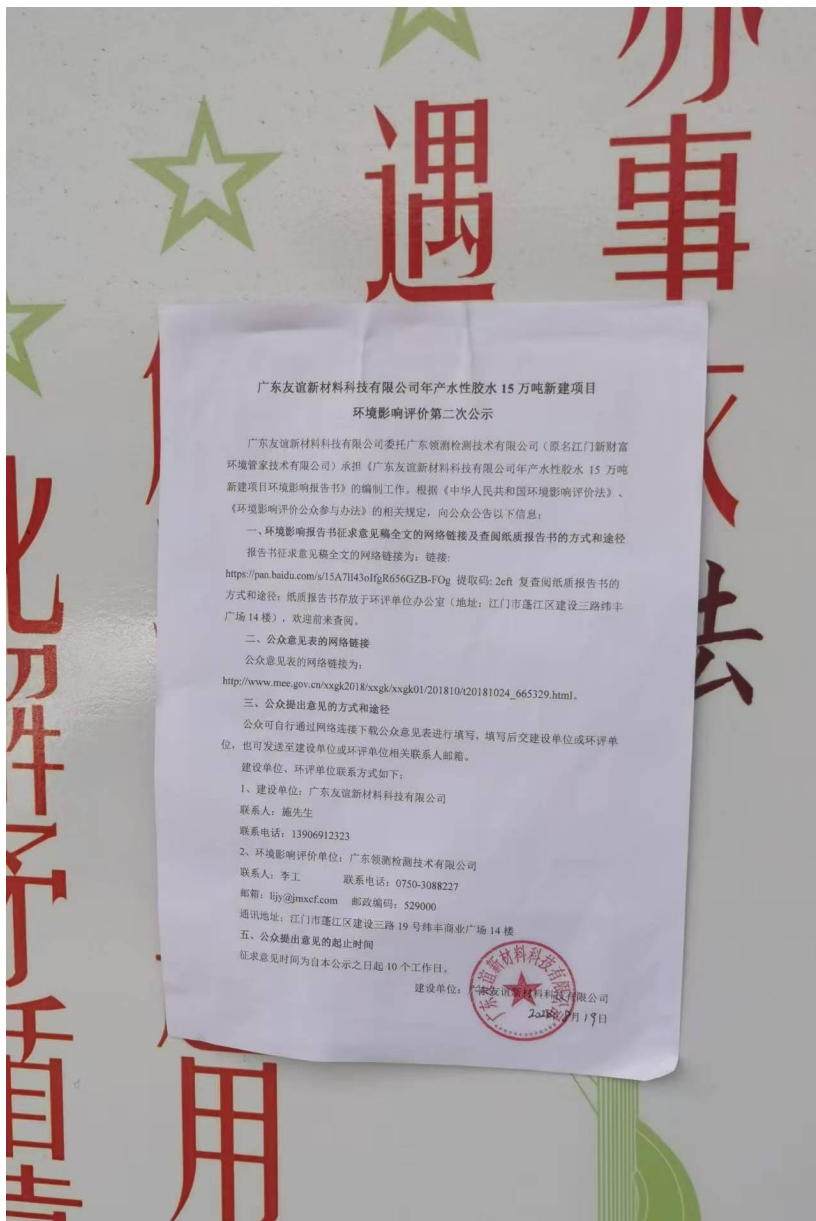 办事
遇
法
化解矛盾
用
广东友谊新材料科技有限公司年产水性胶水 15 万吨新建项目
环境影响评价第二次公示
广东友谊新材料科技有限公司委托广东领测检测技术有限公司（原名江门新财富
环境管家技术有限公司）承担《广东友谊新材料科技有限公司年产水性胶水 15 万吨
新建项目环境影响报告书》的编制工作。根据《中华人民共和国环境影响评价法》、
《环境影响评价公众参与办法》的相关规定，向公众公告以下信息：
一、环境影响报告书征求意见稿全文的网络链接及查阅纸质报告书的方式和途径
报告书征求意见稿全文的网络链接为：链接:
https://pan.baidu.com/s/15A7lI43oIfgR656GZB-FOg 提取码: 2eft 复查阅纸质报告书的
方式和途径：纸质报告书存放于环评单位办公室（地址：江门市蓬江区建设三路纬丰
广场 14 楼），欢迎前来查阅。
二、公众意见表的网络链接
公众意见表的网络链接为：
http://www.mee.gov.cn/xxgk2018/xxgk/xxgk01/201810/t20181024_665329.html。
三、公众提出意见的方式和途径
公众可自行通过网络连接下载公众意见表进行填写，填写后交建设单位或环评单
位，也可发送至建设单位或环评单位相关联系人邮箱。
建设单位、环评单位联系方式如下：
1、建设单位：广东友谊新材料科技有限公司
联系人：施先生
联系电话：13906912323
2、环境影响评价单位：广东领测检测技术有限公司
联系人：李工 联系电话：0750-3088227
邮箱：lijy@jmxcf.com 邮政编码：529000
通讯地址：江门市蓬江区建设三路 19 号纬丰商业广场 14 楼
五、公众提出意见的起止时间
征求意见时间为自本公示之日起 10 个工作日。
建设单位：广东友谊新材料科技有限公司
月 19 日
广东友谊新材料科技有限公司